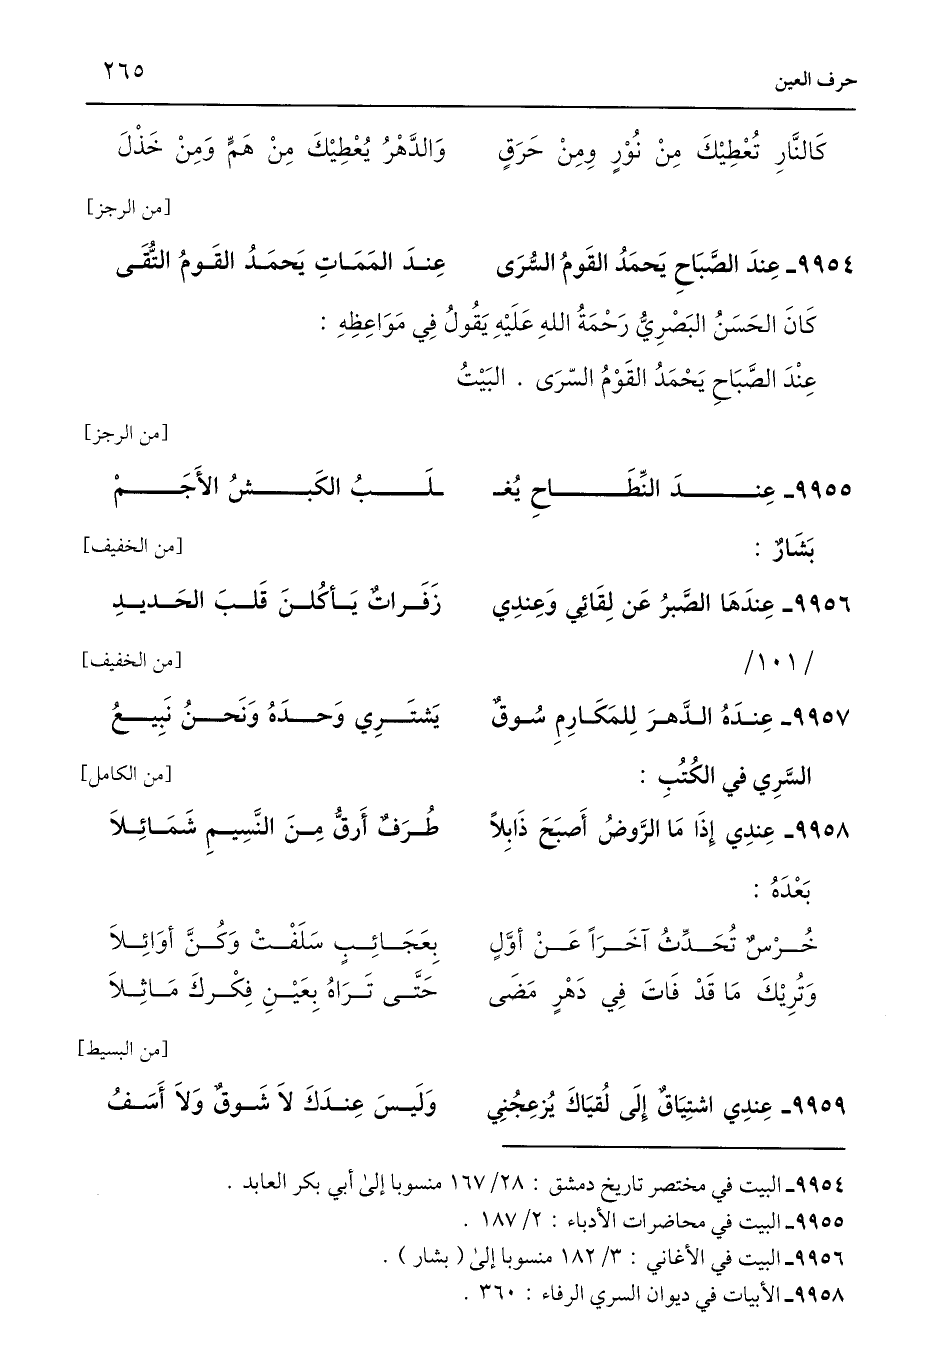 حرف العين ٢٦٥
كَالنَّارِ تُعْطِيْكَ مِنْ نُوْرٍ ومِنْ حَرَقٍ وَالدَّهْرُ يُعْطِيْكَ مِنْ هَمٍّ وَمِنْ خَذْلَ
[من الرجز]
٩٩٥٤ـ عِندَ الصَّبَاحِ يَحمَدُ القَومُ السُّرَى عِنـدَ المَمَـاتِ يَحمَـدُ القَـومُ التُّقَـى
كَانَ الحَسَنُ البَصْرِيُّ رَحْمَةُ اللهِ عَلَيْهِ يَقُولُ فِي مَوَاعِظِهِ :
عِنْدَ الصَّبَاحِ يَحْمَدُ القَوْمُ السّرَى . البَيْتُ
[من الرجز]
٩٩٥٥ـ عِنـــدَ النِّطَـــاحِ يُغـ ـلَـــبُ الكَبـــشُ الأَجَـــمْ
بَشَارٌ : [من الخفيف]
٩٩٥٦ـ عِندَهَا الصَّبرُ عَن لِقَائِي وَعِندِي زَفَـراتٌ يَـأكُلـنَ قَلـبَ الحَـديـدِ
/١٠١/ [من الخفيف]
٩٩٥٧ـ عِنـدَهُ الـدَّهـرَ لِلمَكَـارِمِ سُـوقٌ يَشتَـرِي وَحـدَهُ وَنَحـنُ نَبِيـعُ
السَّرِي في الكُتُبِ : [من الكامل]
٩٩٥٨ـ عِندِي إِذَا مَا الرَّوضُ أَصبَحَ ذَابِلاً طُـرَفٌ أَرقُّ مِـنَ النَّسِيـمِ شَمَـائِـلاَ
بَعْدَهُ :
خُـرْسٌ تُحَـدِّثُ آخَـرَاً عَـنْ أوَّلٍ بِعَجَـائِـبٍ سَلَفَـتْ وَكُـنَّ أوَائِـلاَ
وَتُرِيْكَ مَا قَدْ فَاتَ فِي دَهْرٍ مَضَى حَتَّـى تَـرَاهُ بِعَيْـنِ فِكْـرِكَ مَـاثِـلاَ
[من البسيط]
٩٩٥٩ـ عِندِي اشتِيَاقٌ إِلَى لُقيَاكَ يُزعِجُنِي وَلَيـسَ عِنـدَكَ لاَ شَـوقٌ وَلاَ أَسَـفُ
٩٩٥٤ـ البيت في مختصر تاريخ دمشق : ٢٨/ ١٦٧ منسوبا إلىٰ أبي بكر العابد .
٩٩٥٥ـ البيت في محاضرات الأدباء : ٢/ ١٨٧ .
٩٩٥٦ـ البيت في الأغاني : ٣/ ١٨٢ منسوبا إلىٰ ( بشار ) .
٩٩٥٨ـ الأبيات في ديوان السري الرفاء : ٣٦٠ .